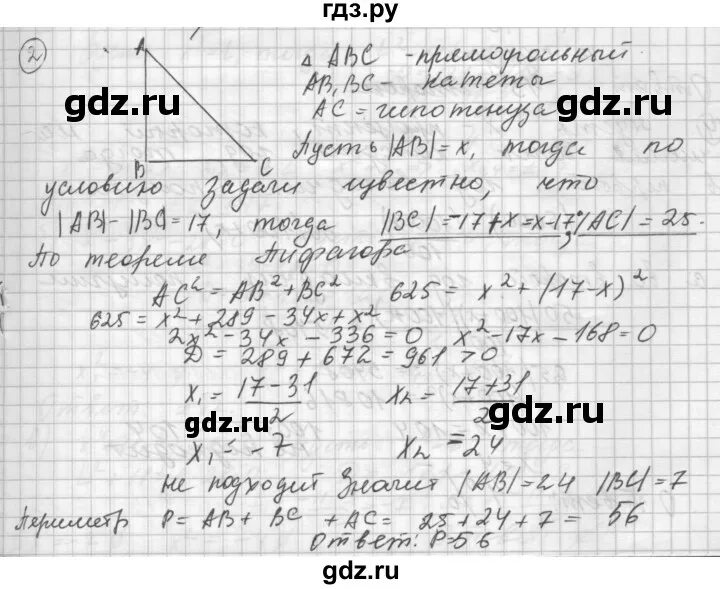 гдз.ру
2
A
B
C
Δ ABC - прямоугольный
AB, BC - катеты
AC = гипотенуза
Пусть |AB|=x, тогда по
условию задачи известно, что
|AB|-|BC|=17, тогда |BC|=-17+x=x-17; |AC|=25.
По теореме Пифагора
AC²=AB²+BC² 625= x²+(17-x)²
625=x²+289-34x+x²
2x²-34x-336=0 x²-17x-168=0
D=289+672=961>0
x₁=(17-31)/2 x₂=(17+31)/2
x₁=-7 x₂=24
не подходит Значит |AB|=24 |BC|=7
Периметр P=AB+BC+AC=25+24+7=56
Ответ: P=56
gdz.ru
gdz.ru
gdz.ru
gdz.ru
gdz.ru
gdz.ru
gdz.ru
gdz.ru